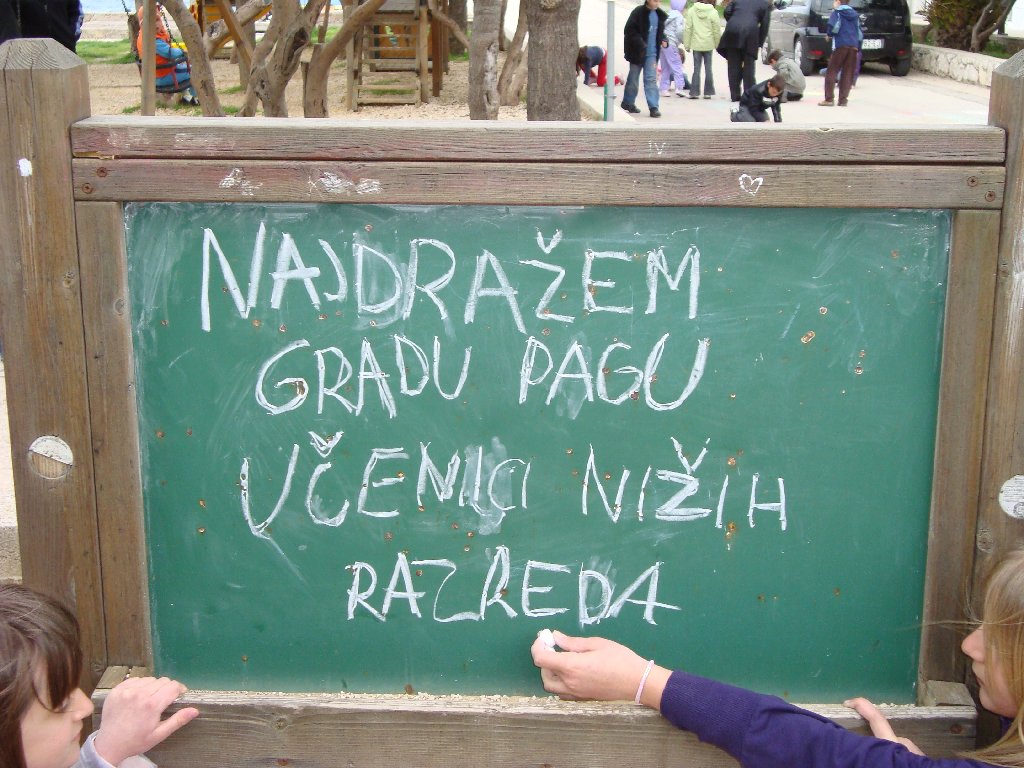 NAJDRAŽEM
GRADU PAGU
UČENICI NIŽIH
RAZREDA